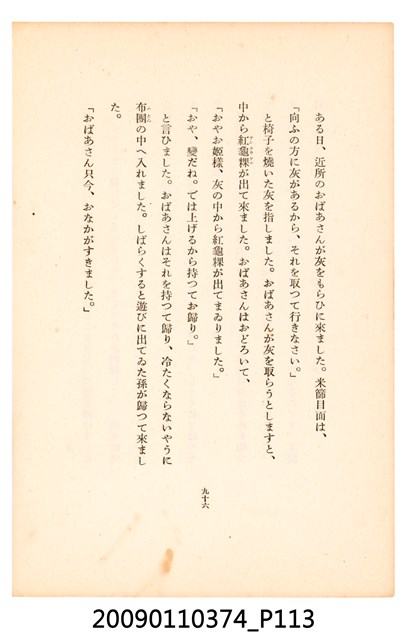 ある日、近所のおばあさんが灰をもらひに來ました。米篩目面は、
「向ふの方に灰があるから、それを取つて行きなさい。」
と椅子を燒いた灰を指しました。おばあさんが灰を取らうとしますと、
中から紅龜粿が出て來ました。おばあさんはおどろいて、
「おやお姬樣、灰の中から紅龜粿が出てまゐりました。」
「おや、變だね。では上げるから持つてお歸り。」
と言ひました。おばあさんはそれを持つて歸り、冷たくならないやうに
布團の中へ入れました。しばらくすると遊びに出てゐた孫が歸つて來まし
た。
「おばあさん只今、おなかがすきました。」
九十六
20090110374_P113